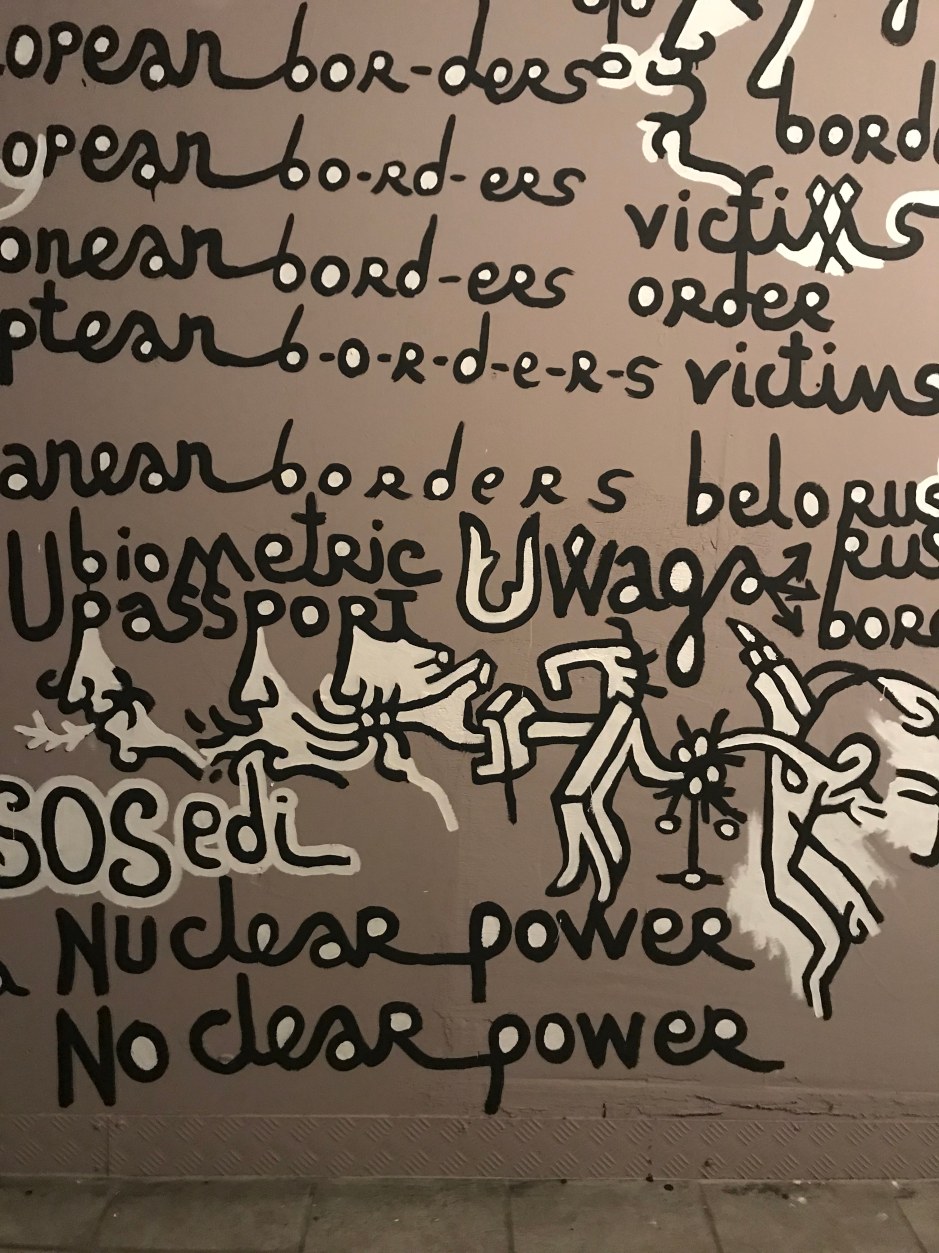 opean bor-ders
bord
opean bo-rd-ers
victims
onean bord-ers
order
ptean b-o-r-d-e-r-s victims
anean borders belorus
U biometric Uwaga rus
passport bor
SOSedi
Nuclear power
No clear power